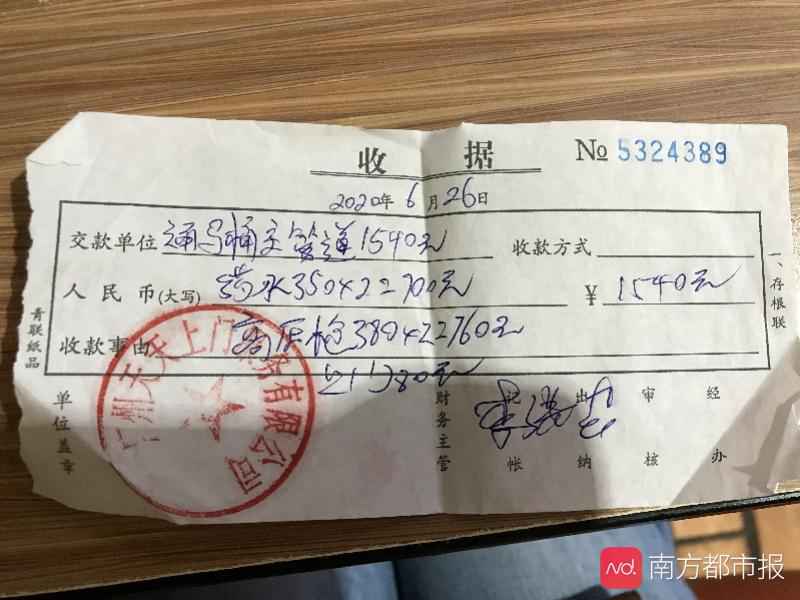 收 据 № 5324389
2020年6月26日
交款单位 通马桶主管道1540元 收款方式
人民币(大写) 药水350×2=700元 ¥ 1540元
收款事由 高压枪380×2=760元
80元
一、存根联
青联纸品
单位盖章
财务主管
记帐
出纳
审核
经办
广州天天上门服务有限公司
nd. 南方都市报